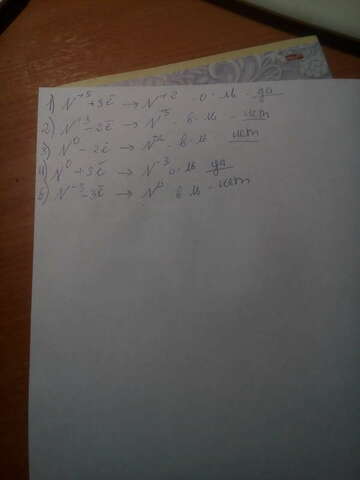 1) N⁺⁵ + 3ē → N⁺² о-ль - да
2) N⁺³ - 2ē → N⁺⁵ - в-ль - нет
3) N⁰ - 2ē → N⁺² - в-ль нет
4) N⁰ + 3ē → N⁻³ о-ль да
5) N⁻³ - 3ē → N⁰ в-ль - нет